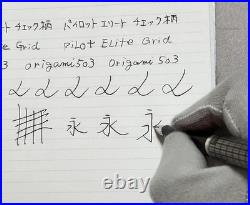 ート チェック柄 パイロットエリート チェック柄
te Grid Pilot Elite Grid
3 origami503 Origami 503
永 永 永
Copyright